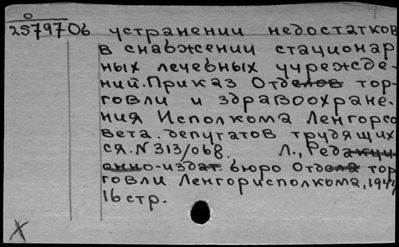 о
2579706 устранении недостатков
в снабжении стационар
ных лечебных учрежде-
ний. Приказ Отделов тор-
говли и здравоохране-
ния Исполкома Ленгорсо
вета депутатов трудящих
ся. N 313/068. Л., Редакци
онно-издат. бюро Отдела тор
говли Ленгорисполкома, 1941,
16 стр.
X